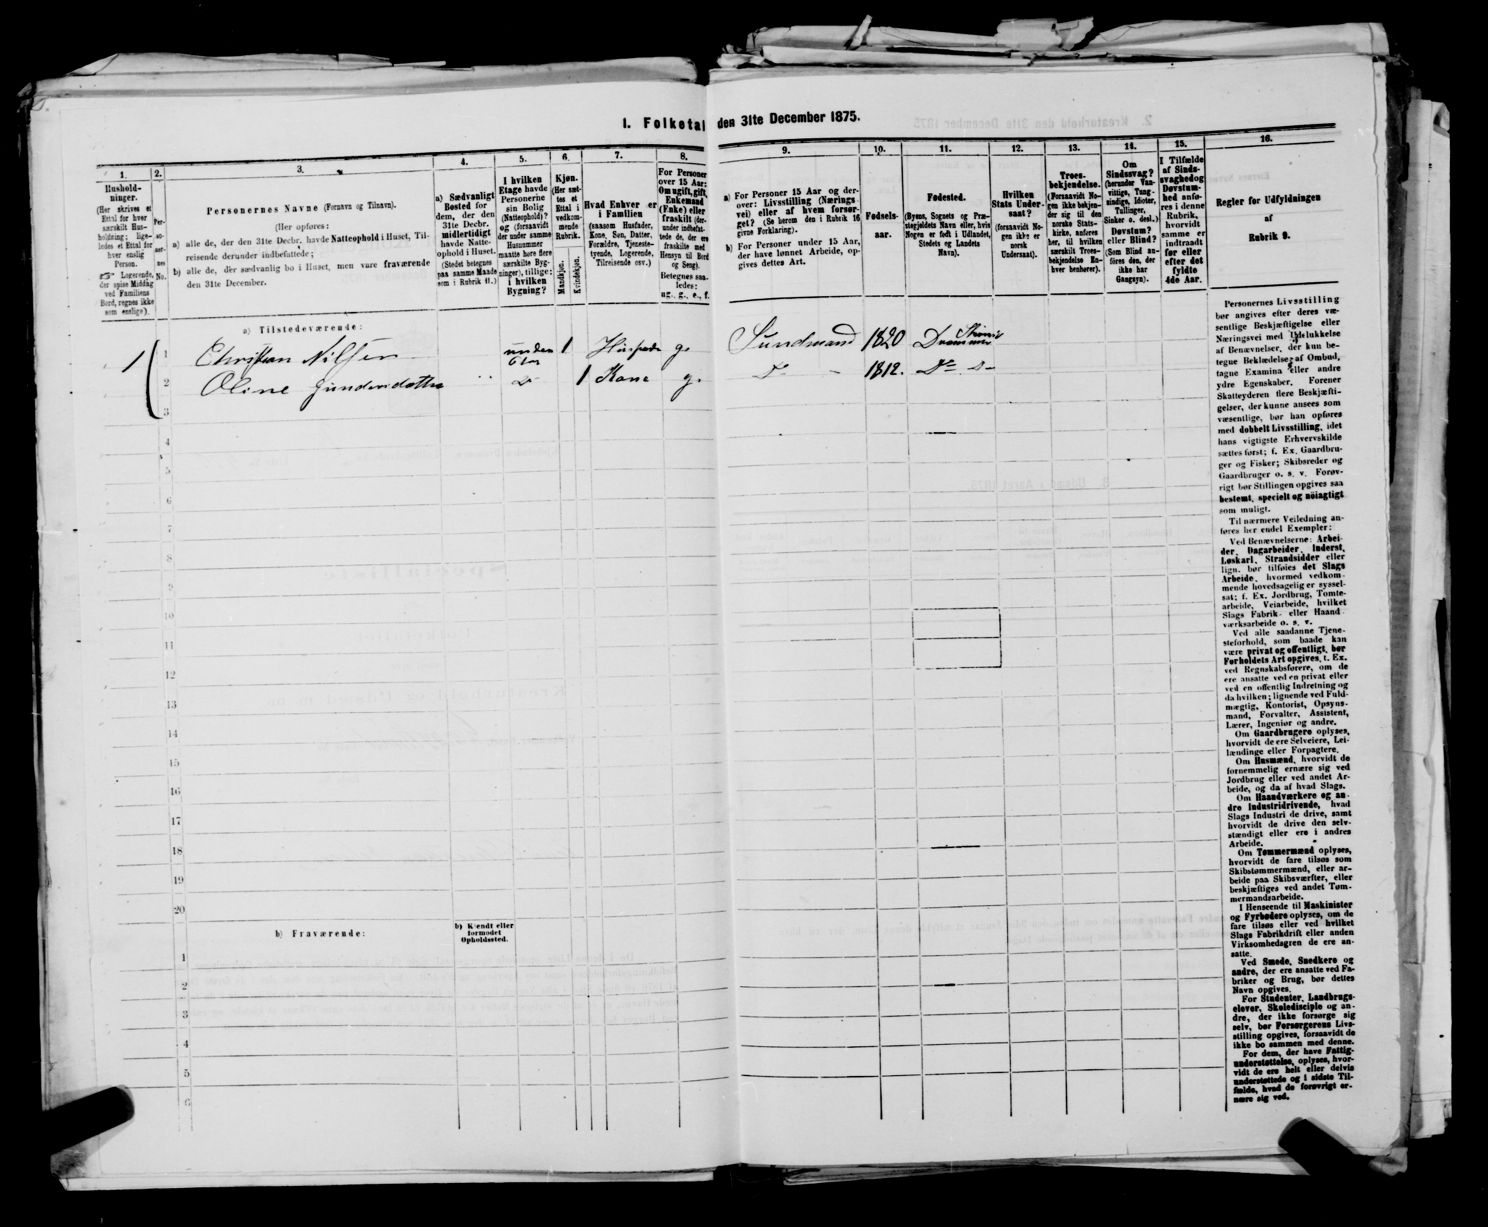 1. Folketal den 31te December 1875.
1.
Hushold-
ninger.
(Her skrives et
Ettal for hver
særskilt Hus-
holdning; lige-
ledes et Ettal for
hver enslig
Person.
☞ Logerende,
der spise Middag
ved Familiens
Bord, regnes ikke
som enslige).
2.
Per-
so-
ner-
nes
No.
3.
Personernes Navne (Fornavn og Tilnavn).
(Her opføres:
a) alle de, der den 31te Decbr. havde Natteophold i Huset, Til-
reisende derunder indbefattede;
b) alle de, der sædvanlig bo i Huset, men vare fraværende
den 31te December.
4.
a) Sædvanligt
Bosted for
dem, der den
31te Decbr.
midlertidigt
havde Natte-
ophold i Huset.
(Stedet betegnes
paa samme Maade
som i Rubrik 11.)
5.
I hvilken
Etage havde
Personerne
sin Bolig
(Natteophold)?
og (forsaavidt
der under samme
Husnummer
maatte høre flere
særskilte Byg-
ninger), tillige:
i hvilken
Bygning?
6.
Kjøn.
(Her sæt-
tes et
Ettal i
vedkom-
mende
Rubrik.
Mandkjøn.
Kvindekjøn.
7.
Hvad Enhver er
i Familien
(saasom Husfader,
Kone, Søn, Datter,
Forældre, Tjeneste-
tyende, Logerende,
Tilreisende osv.)
8.
For Personer
over 15 Aar:
Om ugift, gift,
Enkemand
(Enke) eller
fraskilt (der-
under indbefat-
tede de, der ere
fraskilte med
Hensyn til Bord
og Seng).
Betegnes saa-
ledes:
ug., g., e., f.
9.
a) For Personer 15 Aar og der-
over: Livsstilling (Nærings-
vei) eller af hvem forsør-
get? (Se herom den i Rubrik 16
givne Forklaring).
b) For Personer under 15 Aar,
der have lønnet Arbeide, op-
gives dettes Art.
10.
Fødsels-
aar.
11.
Fødested.
(Byens, Sognets og Præ-
stegjeldets Navn eller, hvis
Nogen er født i Udlandet,
Stedets og Landets
Navn).
12.
Hvilken
Stats Under-
saat?
(forsaavidt No-
gen ikke er
norsk
Undersaat).
13.
Troes-
bekjendelse.
(Forsaavidt No-
gen ikke bekjen-
der sig til den
norske Stats-
kirke, anføres
her, til hvilken
særskilt Troes-
bekjendelse En-
hver henhører).
14.
Om
Sindssvag?
(herunder Van-
vittige, Tung-
sindige, Idioter,
Tullinger,
Sinker o. desl.)
Døvstum?
eller Blind?
(Som Blind an-
føres den, der
ikke har
Gangsyn).
15.
I Tilfælde
af Sinds-
svaghed og
Døvstum-
hed anfø-
res i denne
Rubrik,
hvorvidt
samme er
indtraadt
før eller
efter det
fyldte
4de Aar.
16.
Regler for Udfyldningen
af
Rubrik 9.
a) Tilstedeværende:
1 1 Christian Nilsen 1 g. 1820 Drammen
2 Oline Gundersdatter 1 Kone g. Do 1812. Do
3
4
5
6
7
8
9
10
11
12
13
14
15
16
17
18
19
20
b) Fraværende:
b) Kjendt eller
formodet
Opholdssted.
1
2
3
4
5
6
Personernes Livsstilling
bør angives efter deres væ-
sentlige Beskjæftigelse eller
Næringsvei med Udelukkelse
af Benævnelser, der kun be-
tegne Beklædelse af Ombud,
tagne Examina eller andre
ydre Egenskaber. Forener
Skatteyderen flere Beskjæfti-
gelser, der kunne ansees som
væsentlige, bør han opføres
med dobbelt Livsstilling, idet
hans vigtigste Erhvervskilde
sættes først; f. Ex. Gaardbru-
ger og Fisker; Skibsreder og
Gaardbruger o. s. v. Forøv-
rigt bør Stillingen opgives saa
bestemt, specielt og nøiagtigt
som muligt.
Til nærmere Veiledning an-
føres her endel Exempler:
Ved Benævnelserne: Arbei-
der, Dagarbeider, Inderst,
Løskarl, Strandsidder eller
lign. bør tilføies det Slags
Arbeide, hvormed vedkom-
mende hovedsagelig er syssel-
sat; f. Ex. Jordbrug, Tomte-
arbeide, Veiarbeide, hvilket
Slags Fabrik- eller Haand-
værksarbeide o. s. v.
Ved alle saadanne Tjene-
steforhold, som baade kan
være privat og offentligt, bør
Forholdets Art opgives, f. Ex.
ved Regnskabsførere, om de
ere ansatte ved en privat eller
ved en offentlig Indretning og
da hvilken; lignende ved Fuld-
mægtig, Kontorist, Opsyns-
mand, Forvalter, Assistent,
Lærer, Ingeniør og andre.
Om Gaardbrugere oplyses,
hvorvidt de ere Selveiere, Lei-
lændinge eller Forpagtere.
Om Husmænd, hvorvidt de
fornemmelig ernære sig ved
Jordbrug eller ved andet Ar-
beide, og da af hvad Slags.
Om Haandværkere og an-
dre Industridrivende, hvad
Slags Industri de drive, samt
hvorvidt de drive den selv-
stændigt eller ere i andres
Arbeide.
Om Tømmermænd oplyses,
hvorvidt de fare tilsøs som
Skibstømmermænd, eller ar-
beide paa Skibsværfter, eller
beskjæftiges ved andet Tøm-
mermandsarbeide.
I Henseende til Maskinister
og Fyrbødere oplyses, om de
fare tilsøs eller ved hvilket
Slags Fabrikdrift eller anden
Virksomhedsgren de ere an-
satte.
Ved Smede, Snedkere og
andre, der ere ansatte ved Fa-
briker og Brug, bør dettes
Navn opgives.
For Studenter, Landbrugs-
elever, Skoledisciple og an-
dre, der ikke forsørge sig
selv, bør Forsørgerens Livs-
stilling opgives, forsaavidt de
ikke bo sammen med denne.
For dem, der have Fattig-
understøttelse, oplyses, hvor-
vidt de ere helt eller delvis
understøttede og i sidste Til-
fælde, hvad de forøvrigt er-
nære sig ved.